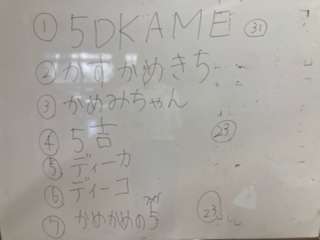 ① 5DKAME ㉛
② かすかめきち
③ かめみちゃん
④ 5吉 ㉓
⑤ ディーカ
⑥ ディーコ
⑦ かめかめの5 ㉓